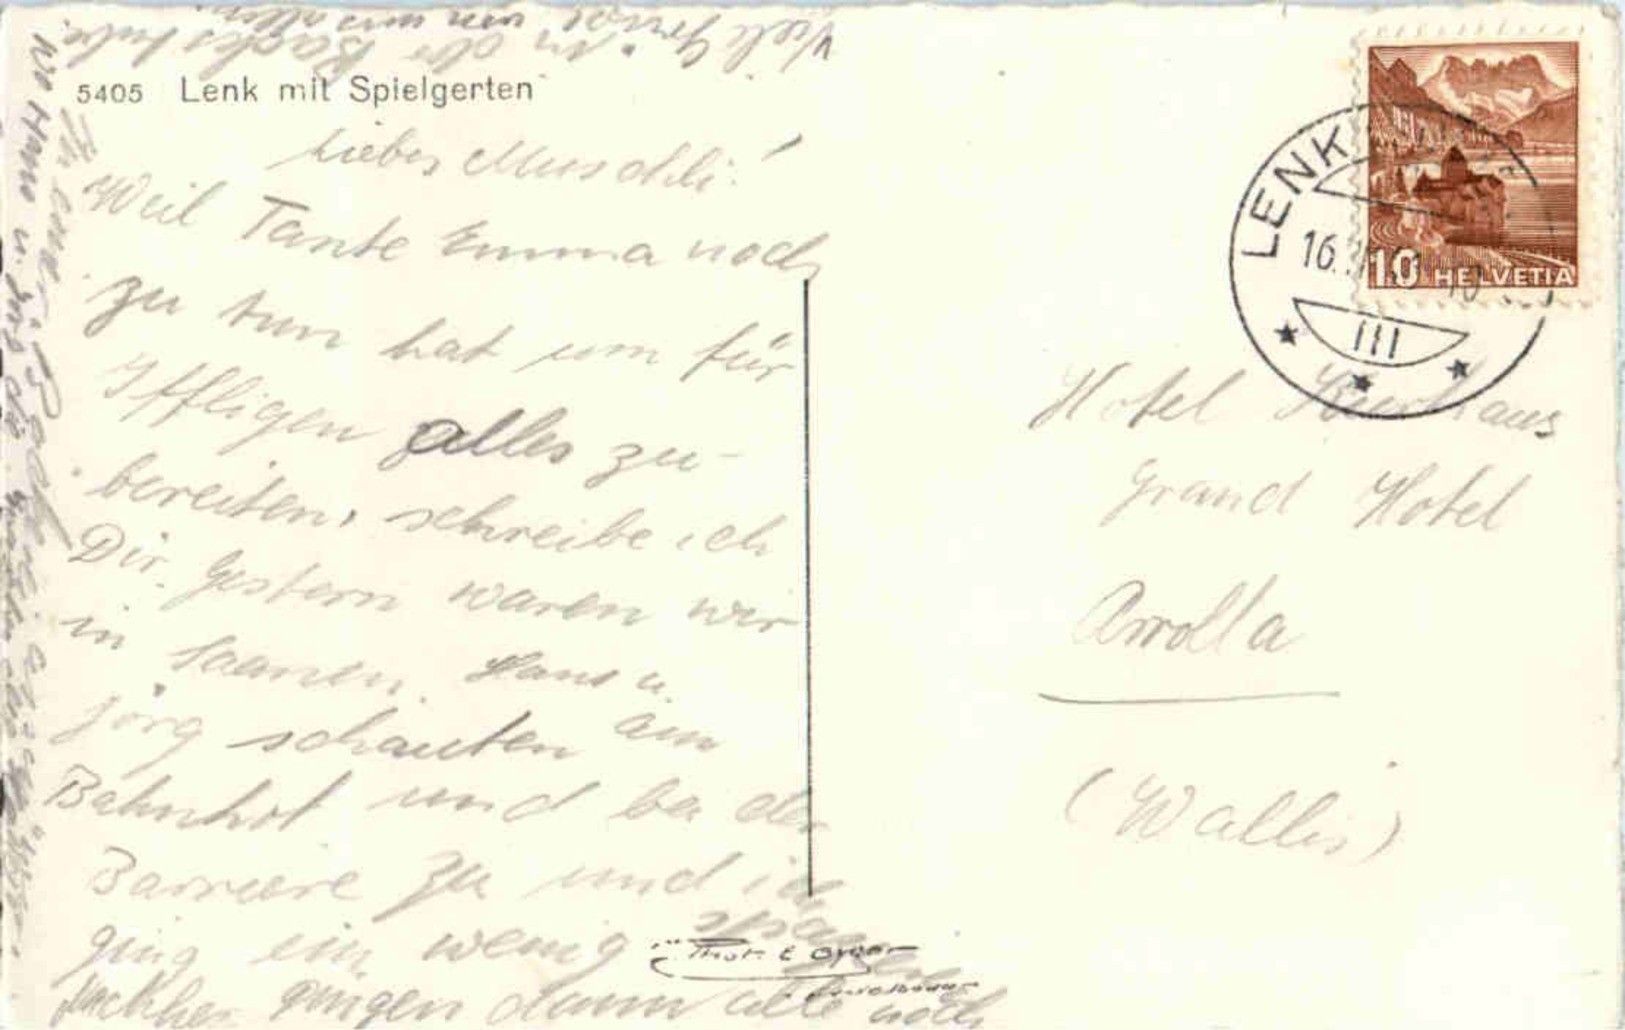 5405 Lenk mit Spielgerten
Liebes Muschli!
Weil Tante Emma noch
zu tun hat um für
Iffligen alles zu-
bereiten, schreibe ich
Dir. Gestern waren wir
in Saanen. Hans u.
Jörg schauten am
Bahnhof und bei der
Barriere zu und ich
ging ein wenig
Nachher gingen dann alle noch
zu einer
wo Hans u.
in der Backstube.
Viele Grüsse von uns allen.
Phot. E. Gyger
Adelboden
LENK
16.
III
10 HELVETIA
Hotel Kurhaus
Grand Hotel
Arrolla
(Wallis)